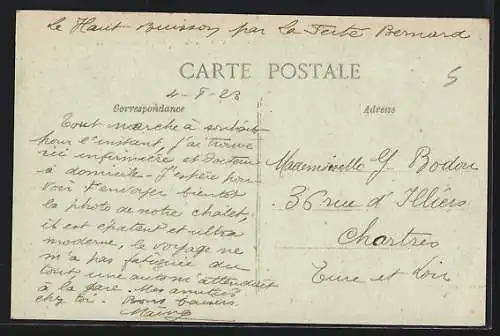 Le Haut Buisson par La Ferté Bernard
CARTE POSTALE
4-8-23
5
Correspondance
Adresse
Tout marche à souhait
pour l'instant, j'ai trouvé
ici infirmière et docteur
à domicile. J'espère pou-
voir t'envoyer bientôt
la photo de notre châlet,
il est épatant et ultra
moderne, le voyage ne
m'a pas fatiguée du
tout une autom' attendait
à la gare. Mes amitiés
chez toi. Bons baisers
Mademoiselle G. Bodou
36 rue d'Illiers
Chartres
Eure et Loir